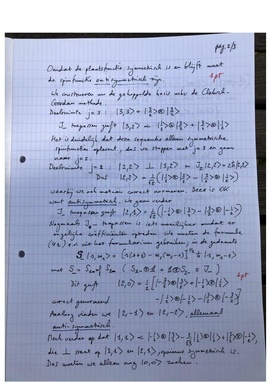 pag. 2/3
Omdat de plaatsfunctie symmetrisch is en blijft moet
de spinfunctie antisymmetrisch zijn.
1pt
We construeren nu de gekoppelde basis via de Clebsch-
Gordan methode.
Deelruimte j=3: |3,3> = |3/2>⊗|3/2>
J_ toepassen geeft |3,2> ∝ |1/2>⊗|3/2> + |3/2>⊗|1/2>
Het is duidelijk dat deze sequentie alleen symmetrische
spinfuncties oplevert, dus we stoppen met j=3 en gaan
naar j=2.
Deelruimte j=2: |2,2> ⊥ |3,2> en J_z|2,2> = 2ħ|2,2>
Dus |2,2> = 1/√2 (|3/2>⊗|1/2> - |1/2>⊗|3/2>)
waarbij we ook meteen correct normeren. Deze is OK
want antisymmetrisch. We gaan verder
J_ toepassen geeft |2,1> = 1/√2 (|3/2>⊗|-1/2> - |-1/2>⊗|3/2>)
Nogmaals J_ toepassen is iets moeilijker omdat er
ongelijke coëfficiënten optreden. We moeten de formule
uit het formularium gebruiken, in de gedaante
met
1pt
Dit geeft |2,0> = 1/2 [
correct genormeerd
Analoog vinden we |2,-1> en |2,-2>, allemaal
antisymmetrisch.
Merk verder op dat |1,1>
die ⊥ staat op |3,1> en |2,1>, opnieuw symmetrisch is.
Dus moeten we alleen nog |0,0> maken.